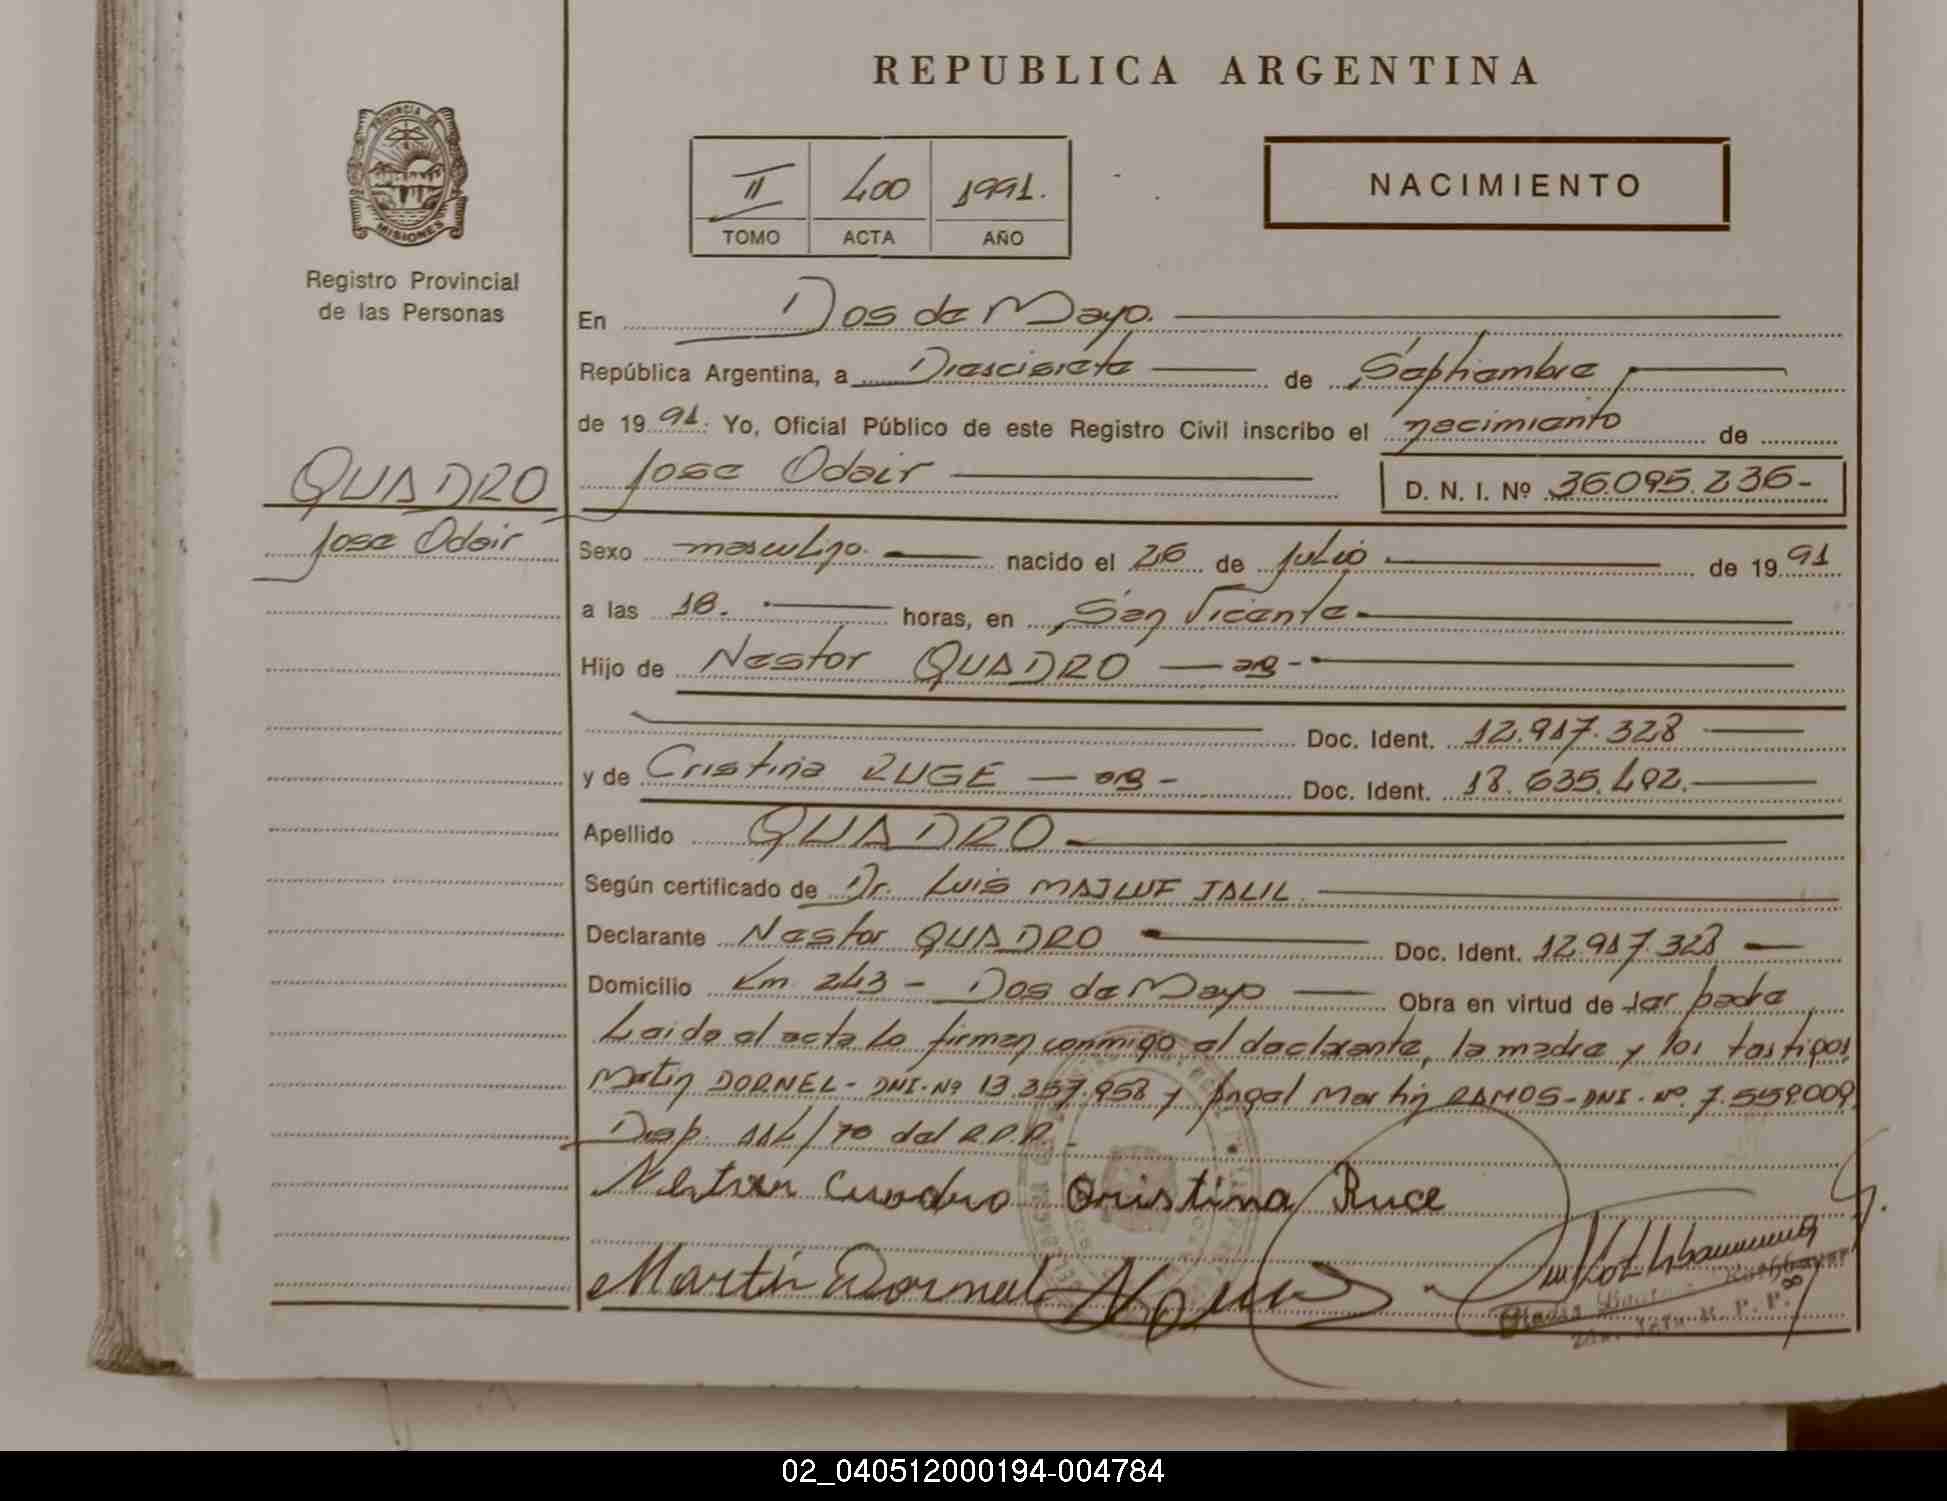 REPUBLICA ARGENTINA
PROVINCIA DE
MISIONES
Registro Provincial
de las Personas
II 400 1991.
TOMO ACTA AÑO
NACIMIENTO
En Dos de Mayo.
República Argentina, a Diescisiete de Septiembre
de 1991. Yo, Oficial Público de este Registro Civil inscribo el nacimiento de
Jose Odair
D. N. I. Nº 36.095.236-
QUADRO
Jose Odair
Sexo masculino. nacido el 26 de Julio de 1991
a las 18. horas, en San Vicente
Hijo de Nestor QUADRO — arg-
Doc. Ident. 12.917.328
y de Cristina RUGE — arg - Doc. Ident. 18.635.492.
Apellido QUADRO
Según certificado de Dr. Luis MAJLUF JALIL.
Declarante Nestor QUADRO Doc. Ident. 12.917.328
Domicilio Km. 243 - Dos de Mayo Obra en virtud de ser padre
Leido el acta lo firman conmigo el declarante, la madre y los testigos
Martin DORNEL - DNI. Nº 13.357.958 y Angel Martin RAMOS - DNI. Nº 7.559.009
Disp. /70 del R.P.P. -
Cuadro Cristina Ruce
Martin Dornel
02_040512000194-004784